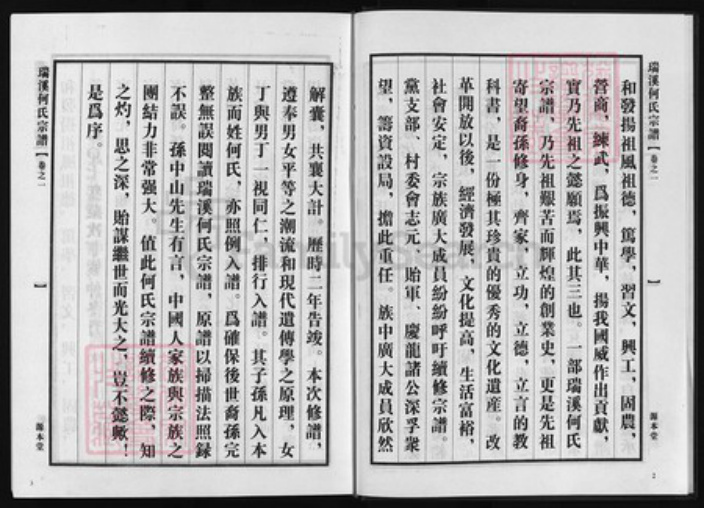 瑞溪何氏宗譜【卷之一】
源本堂
2
和發揚祖風祖德，篤學，習文，興工，固農，
營商，練武，爲振興中華，揚我國威作出貢獻，
實乃先祖之懿願焉，此其三也。一部瑞溪何氏
宗譜，乃先祖艱苦而輝煌的創業史，更是先祖
寄望裔孫修身，齊家，立功，立德，立言的教
科書，是一份極其珍貴的優秀的文化遺産。改
革開放以後，經濟發展，文化提高，生活富裕，
社會安定，宗族廣大成員紛紛呼吁續修宗譜。
黨支部、村委會志元、貽軍、慶龍諸公深孚衆
望，籌資設局，擔此重任。族中廣大成員欣然
解囊，共襄大計。歷時二年告竣。本次修譜，
遵奉男女平等之潮流和現代遺傳學之原理，女
丁與男丁一視同仁，排行入譜。其子孫凡入本
族而姓何氏，亦照例入譜。爲確保後世裔孫完
整無誤閱讀瑞溪何氏宗譜，原譜以掃描法照錄
不誤。孫中山先生有言，中國人家族與宗族之
團結力非常强大，值此何氏宗譜續修之際，知
之灼，思之深，貽謀繼世而光大之，豈不懿歟！
是爲序。
瑞溪何氏宗譜【卷之一】
源本堂
3
FamilySearch